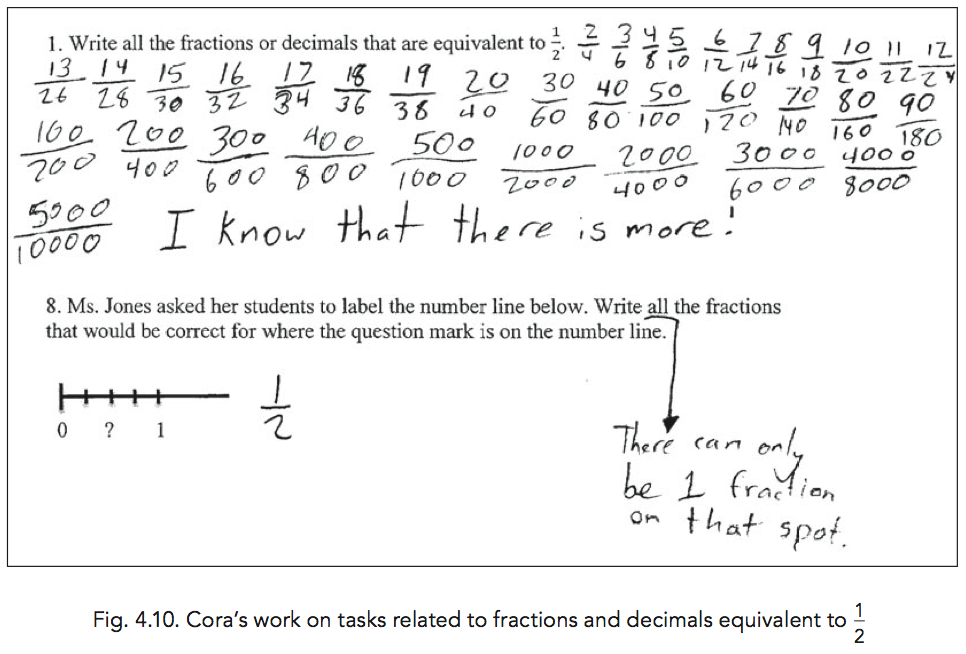 1. Write all the fractions or decimals that are equivalent to 1/2. 2/4 3/6 4/8 5/10 6/12 7/14 8/16 9/18 10/20 11/22 12/24
13/26 14/28 15/30 16/32 17/34 18/36 19/38 20/40 30/60 40/80 50/100 60/120 70/140 80/160 90/180
100/200 200/400 300/600 400/800 500/1000 1000/2000 2000/4000 3000/6000 4000/8000
5000/10000 I know that there is more!
8. Ms. Jones asked her students to label the number line below. Write all the fractions
that would be correct for where the question mark is on the number line.
0 ? 1
1/2
There can only
be 1 fraction
on that spot.
Fig. 4.10. Cora’s work on tasks related to fractions and decimals equivalent to 1/2